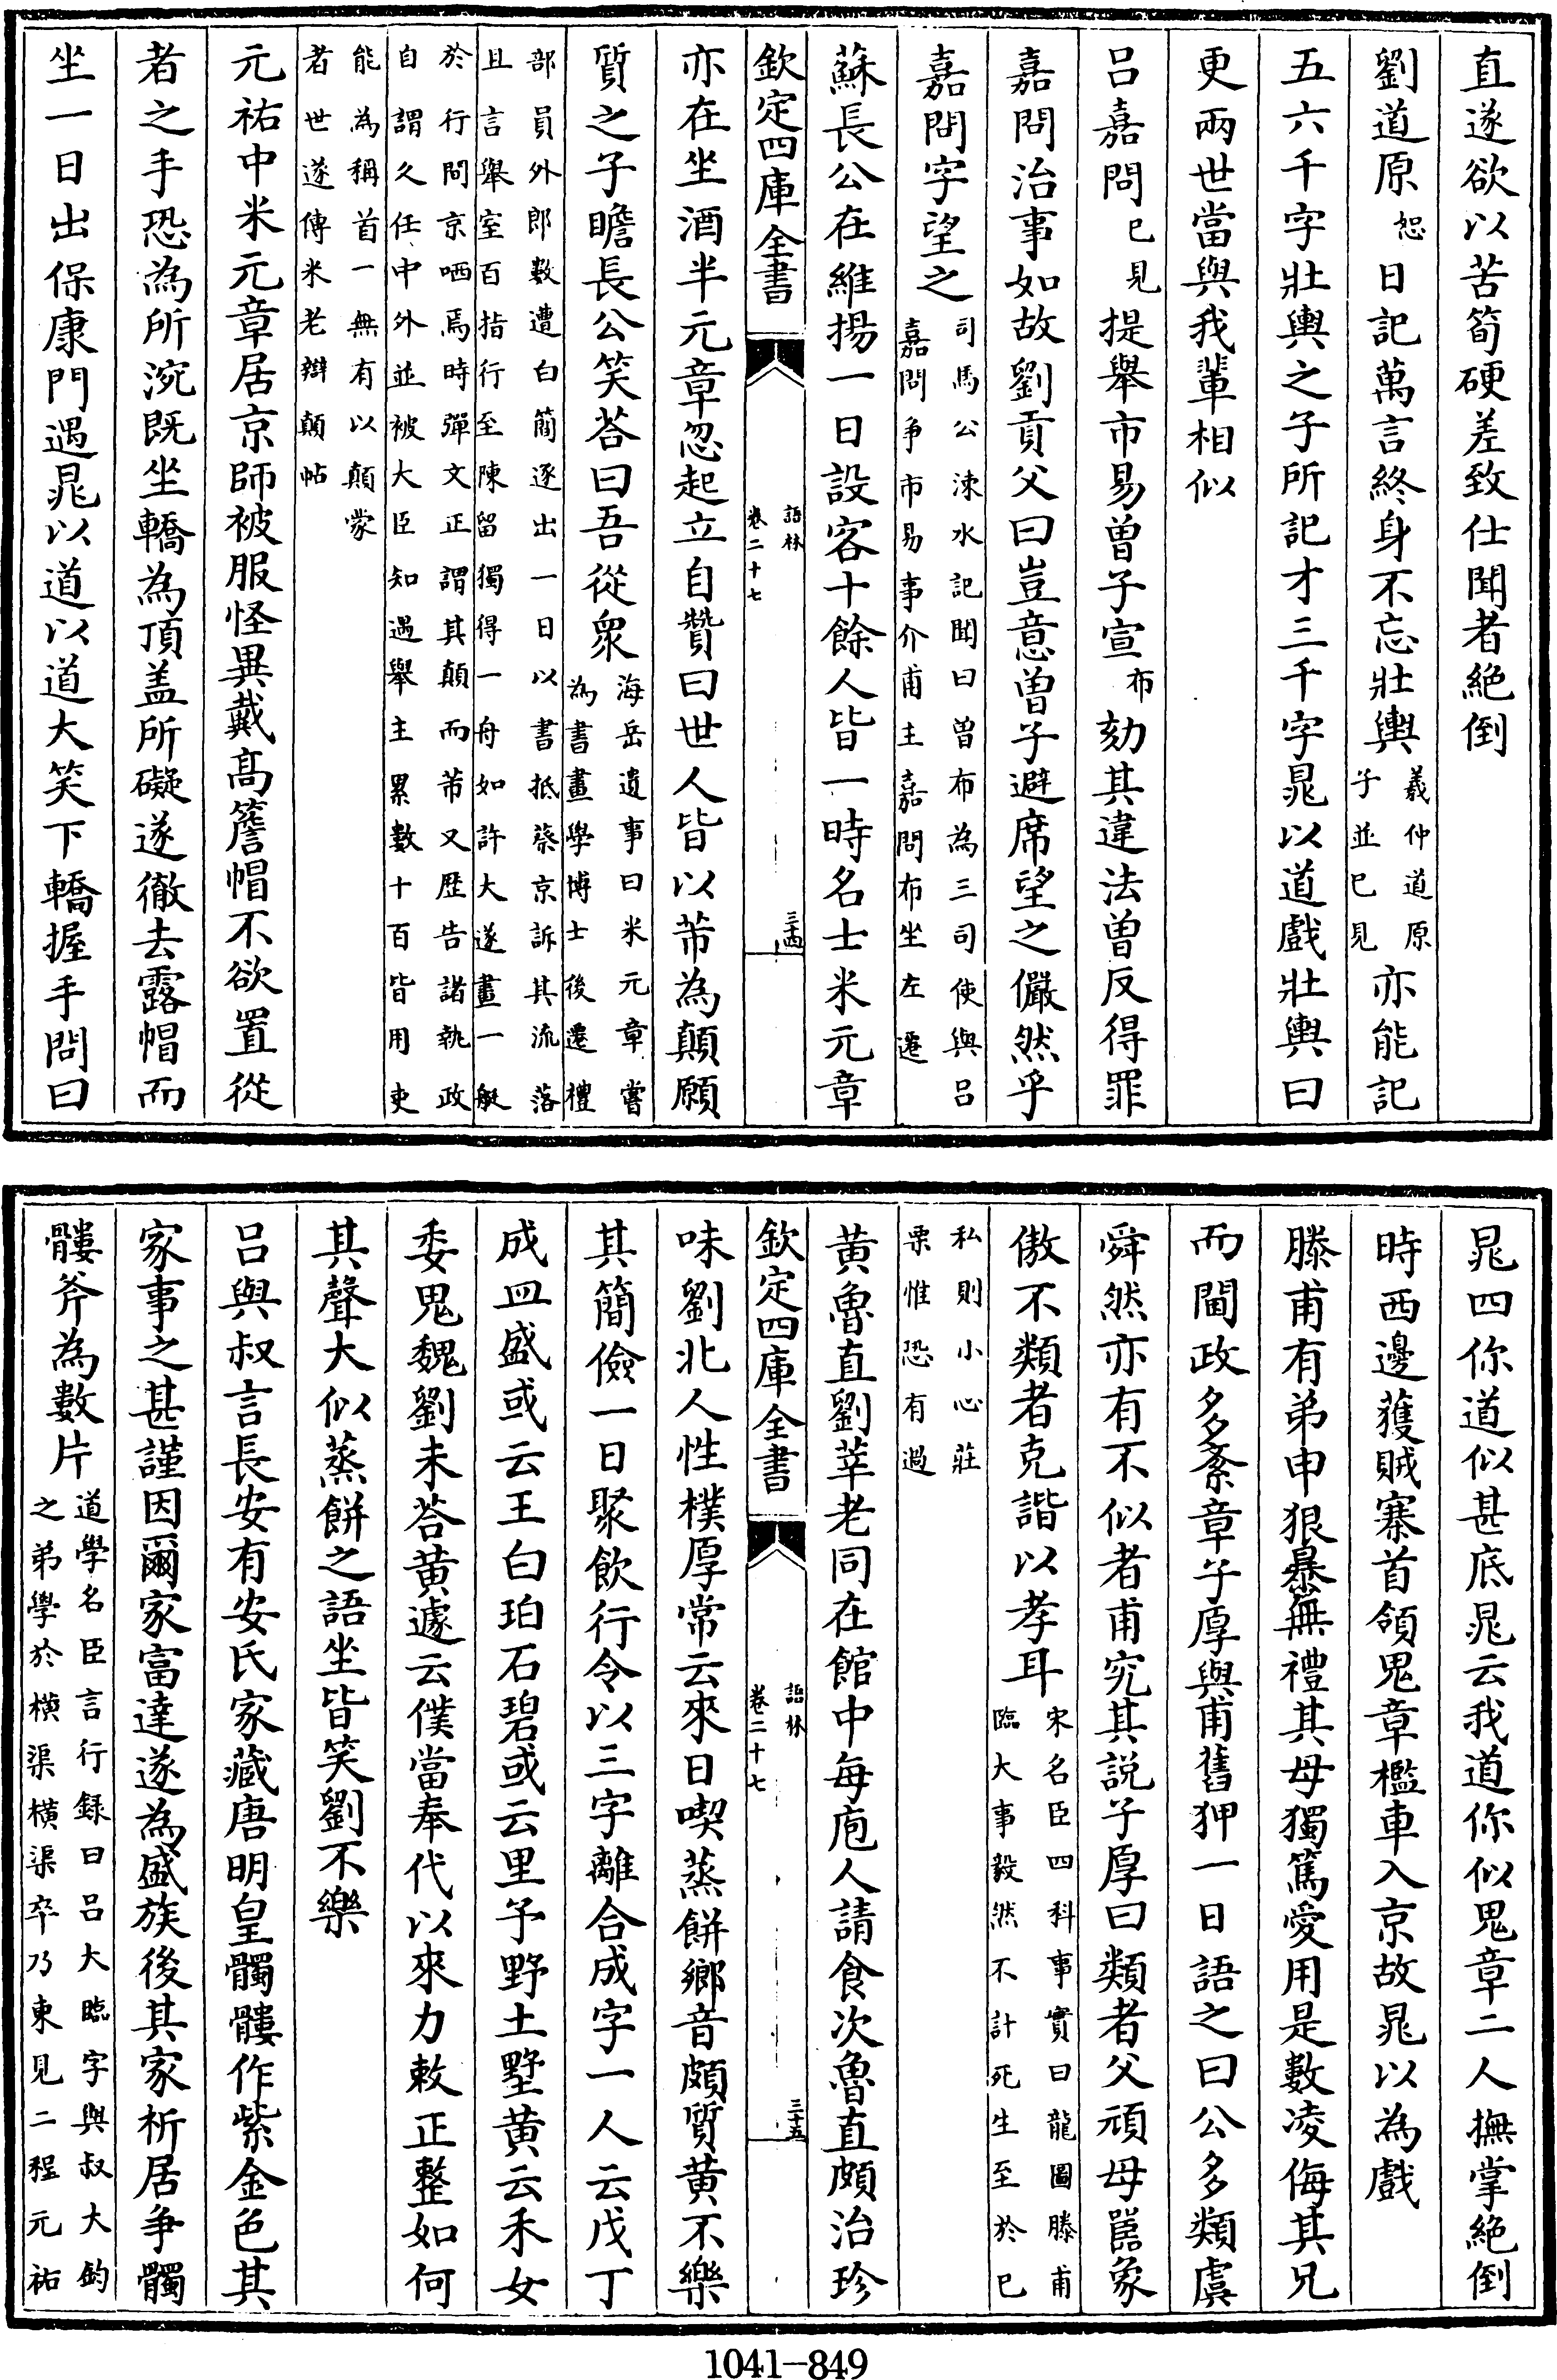 直遂欲以苦筍硬差致仕聞者絶倒
劉道原恕日記萬言終身不忘壯輿羲仲道原子並已見亦能記
五六千字壯輿之子所記才三千字晁以道戲壯輿曰
更兩世當與我輩相似
呂嘉問已見提舉市易曽子宣布劾其違法曽反得罪
嘉問治事如故劉貢父曰豈意曽子避席望之儼然乎
嘉問字望之司馬公涑水記聞曰曽布為三司使與呂嘉問爭市易事介甫主嘉問布坐左遷
蘇長公在維揚一日設客十餘人皆一時名士米元章
欽定四庫全書 語林卷二十七 三十四
亦在坐酒半元章忽起立自贊曰世人皆以芾為顛願
質之子瞻長公笑荅曰吾從衆海岳遺事曰米元章嘗為書畫學博士後遷禮
部員外郎數遭白簡逐出一日以書抵蔡京訴其流落且言舉室百指行至陳留獨得一舟如許大遂畫一艇
於行間京哂焉時彈文正謂其顛而芾又歴告諸執政自謂久任中外並被大臣知遇舉主累數十百皆用吏
能為稱首一無有以顛蒙者世遂傳米老辯顛帖
元祐中米元章居京師被服怪異戴髙簷帽不欲置從
者之手恐為所涴既坐轎為頂盖所礙遂徹去露帽而
坐一日出保康門遇晁以道以道大笑下轎握手問曰
晁四你道似甚底晁云我道你似鬼章二人撫掌絶倒
時西邊獲賊寨首領鬼章檻車入京故晁以為戲
滕甫有弟申狠暴無禮其母獨篤愛用是數凌侮其兄
而閫政多紊章子厚與甫舊狎一日語之曰公多類虞
舜然亦有不似者甫究其說子厚曰類者父頑母嚚象
傲不類者克諧以孝耳宋名臣四科事實曰龍圖滕甫臨大事毅然不計死生至於已
私則小心莊栗惟恐有過
黃魯直劉莘老同在館中每庖人請食次魯直頗治珍
欽定四庫全書 語林卷二十七 三十五
味劉北人性樸厚常云來日喫蒸餅鄉音頗質黃不樂
其簡儉一日聚飲行令以三字離合成字一人云戊丁
成皿盛或云王白珀石碧或云里予野土墅黃云禾女
委鬼魏劉未荅黃遽云僕當奉代以來力敕正整如何
其聲大似蒸餅之語坐皆笑劉不樂
呂與叔言長安有安氏家藏唐明皇髑髏作紫金色其
家事之甚謹因爾家富達遂為盛族後其家析居爭髑
髏斧為數片道學名臣言行録曰呂大臨字與叔大鈞之弟學於橫渠橫渠卒乃東見二程元祐
1041-849